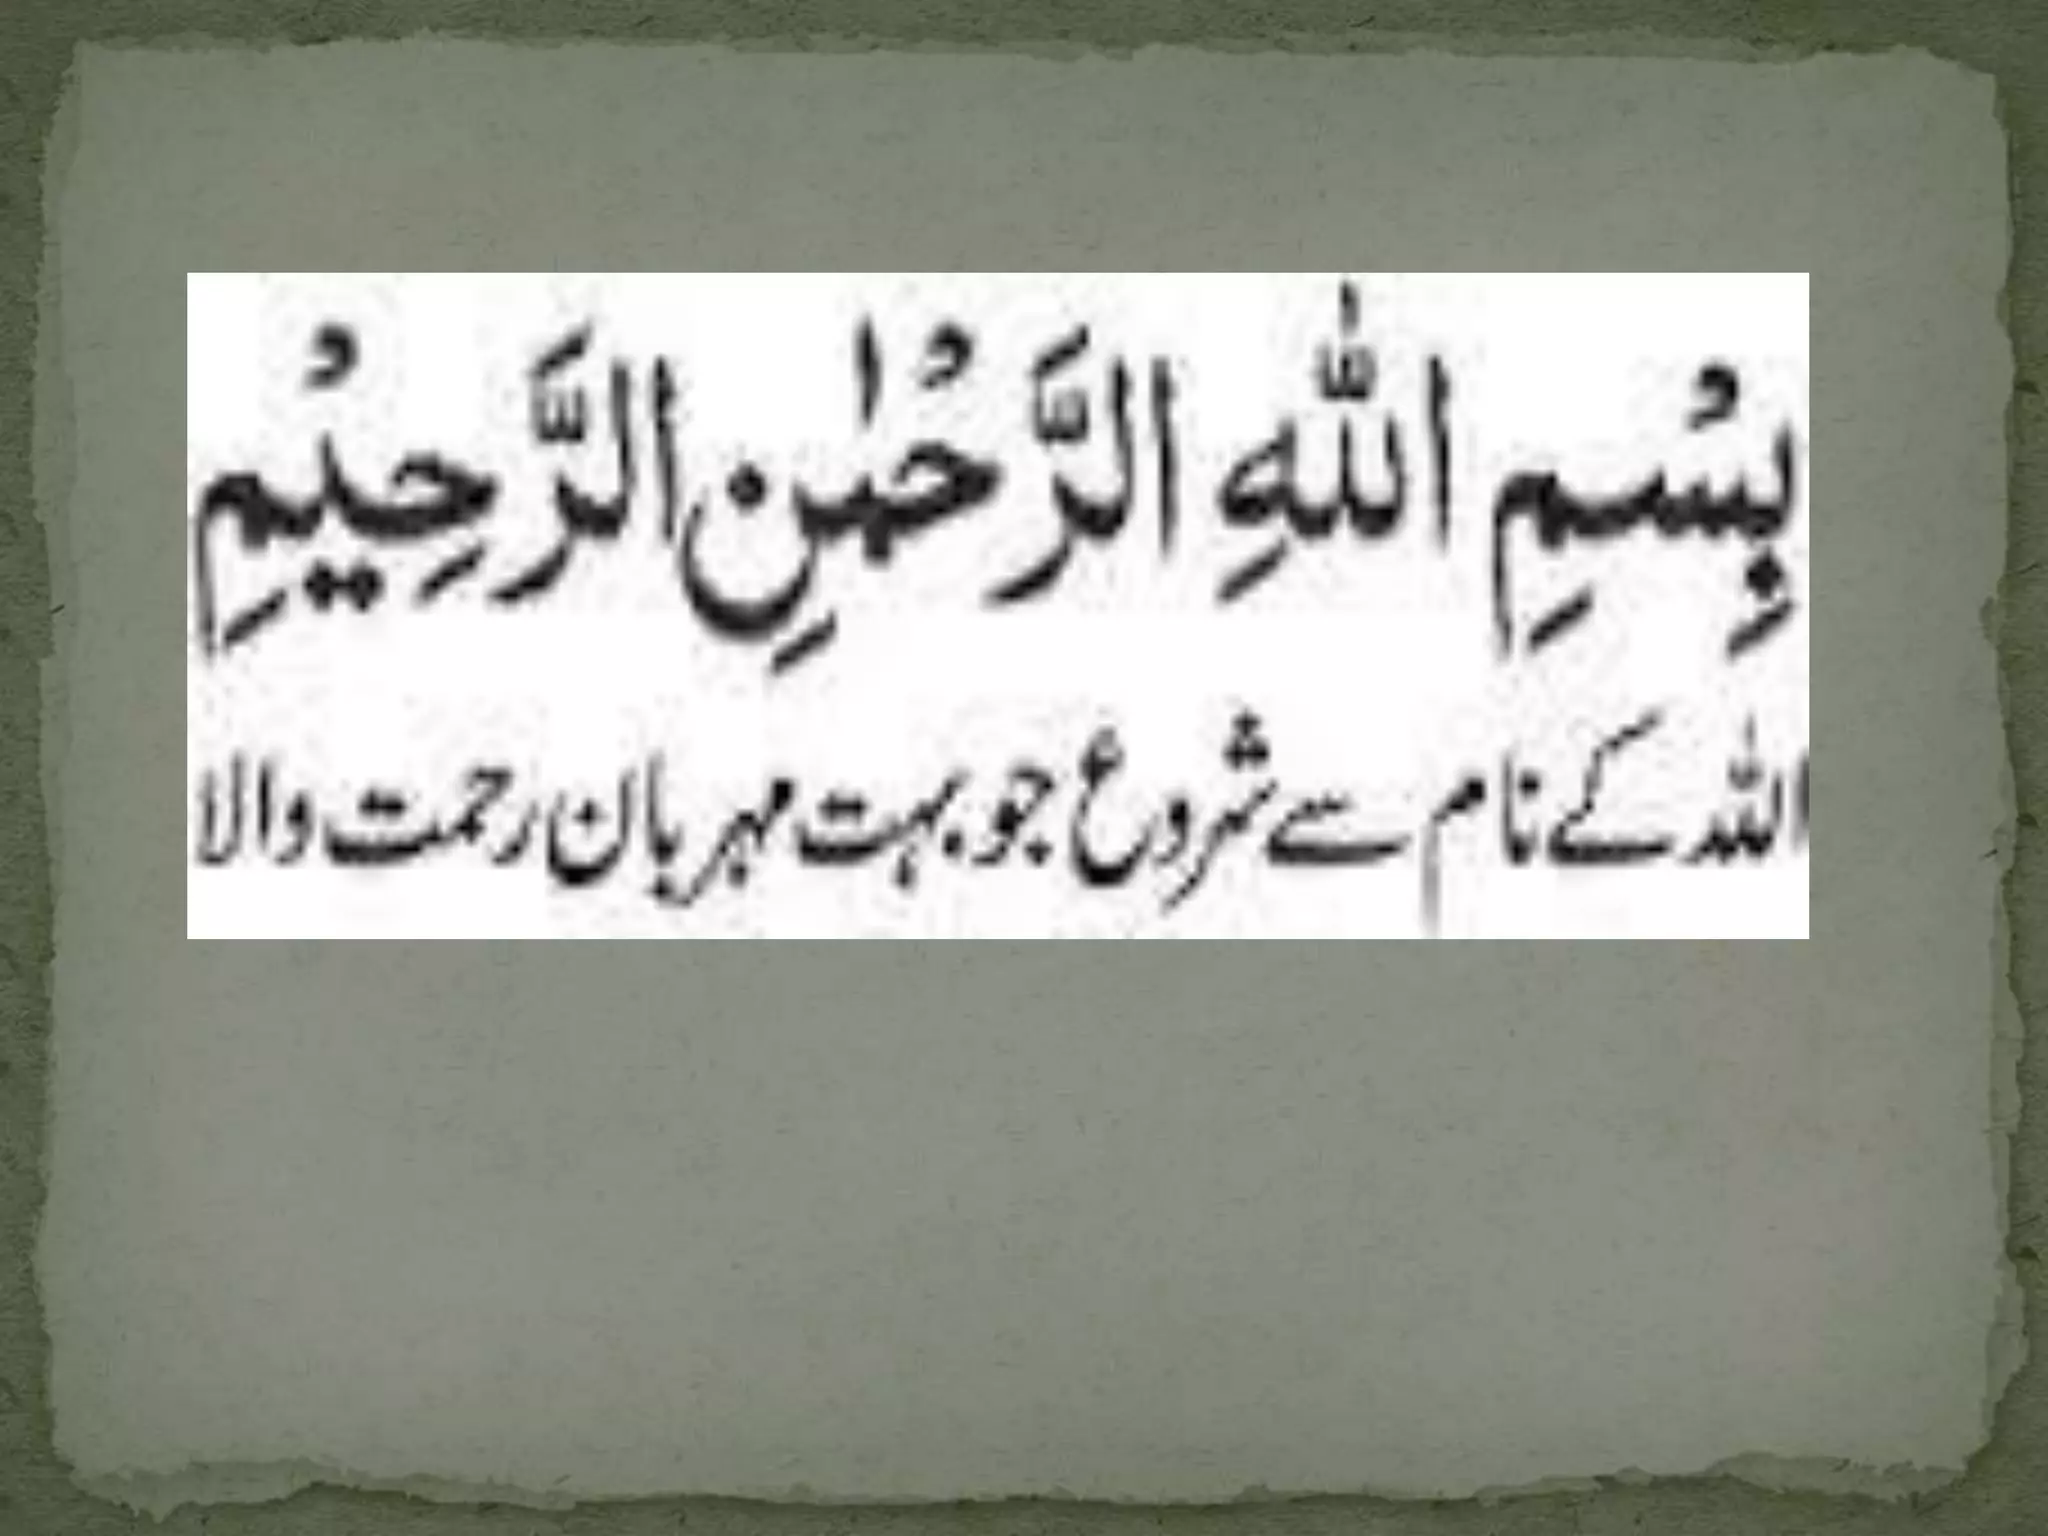 بِسْمِ اللّٰهِ الرَّحْمٰنِ الرَّحِیْمِ
اللہ کے نام سے شروع جو بہت مہربان رحمت والا